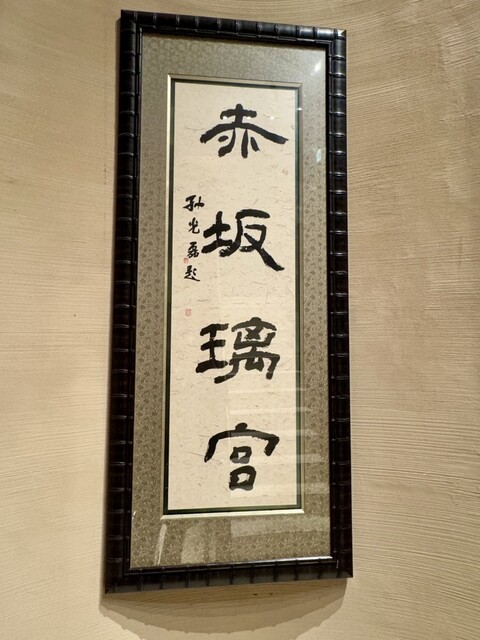 赤坂璃宮
孔光磊题